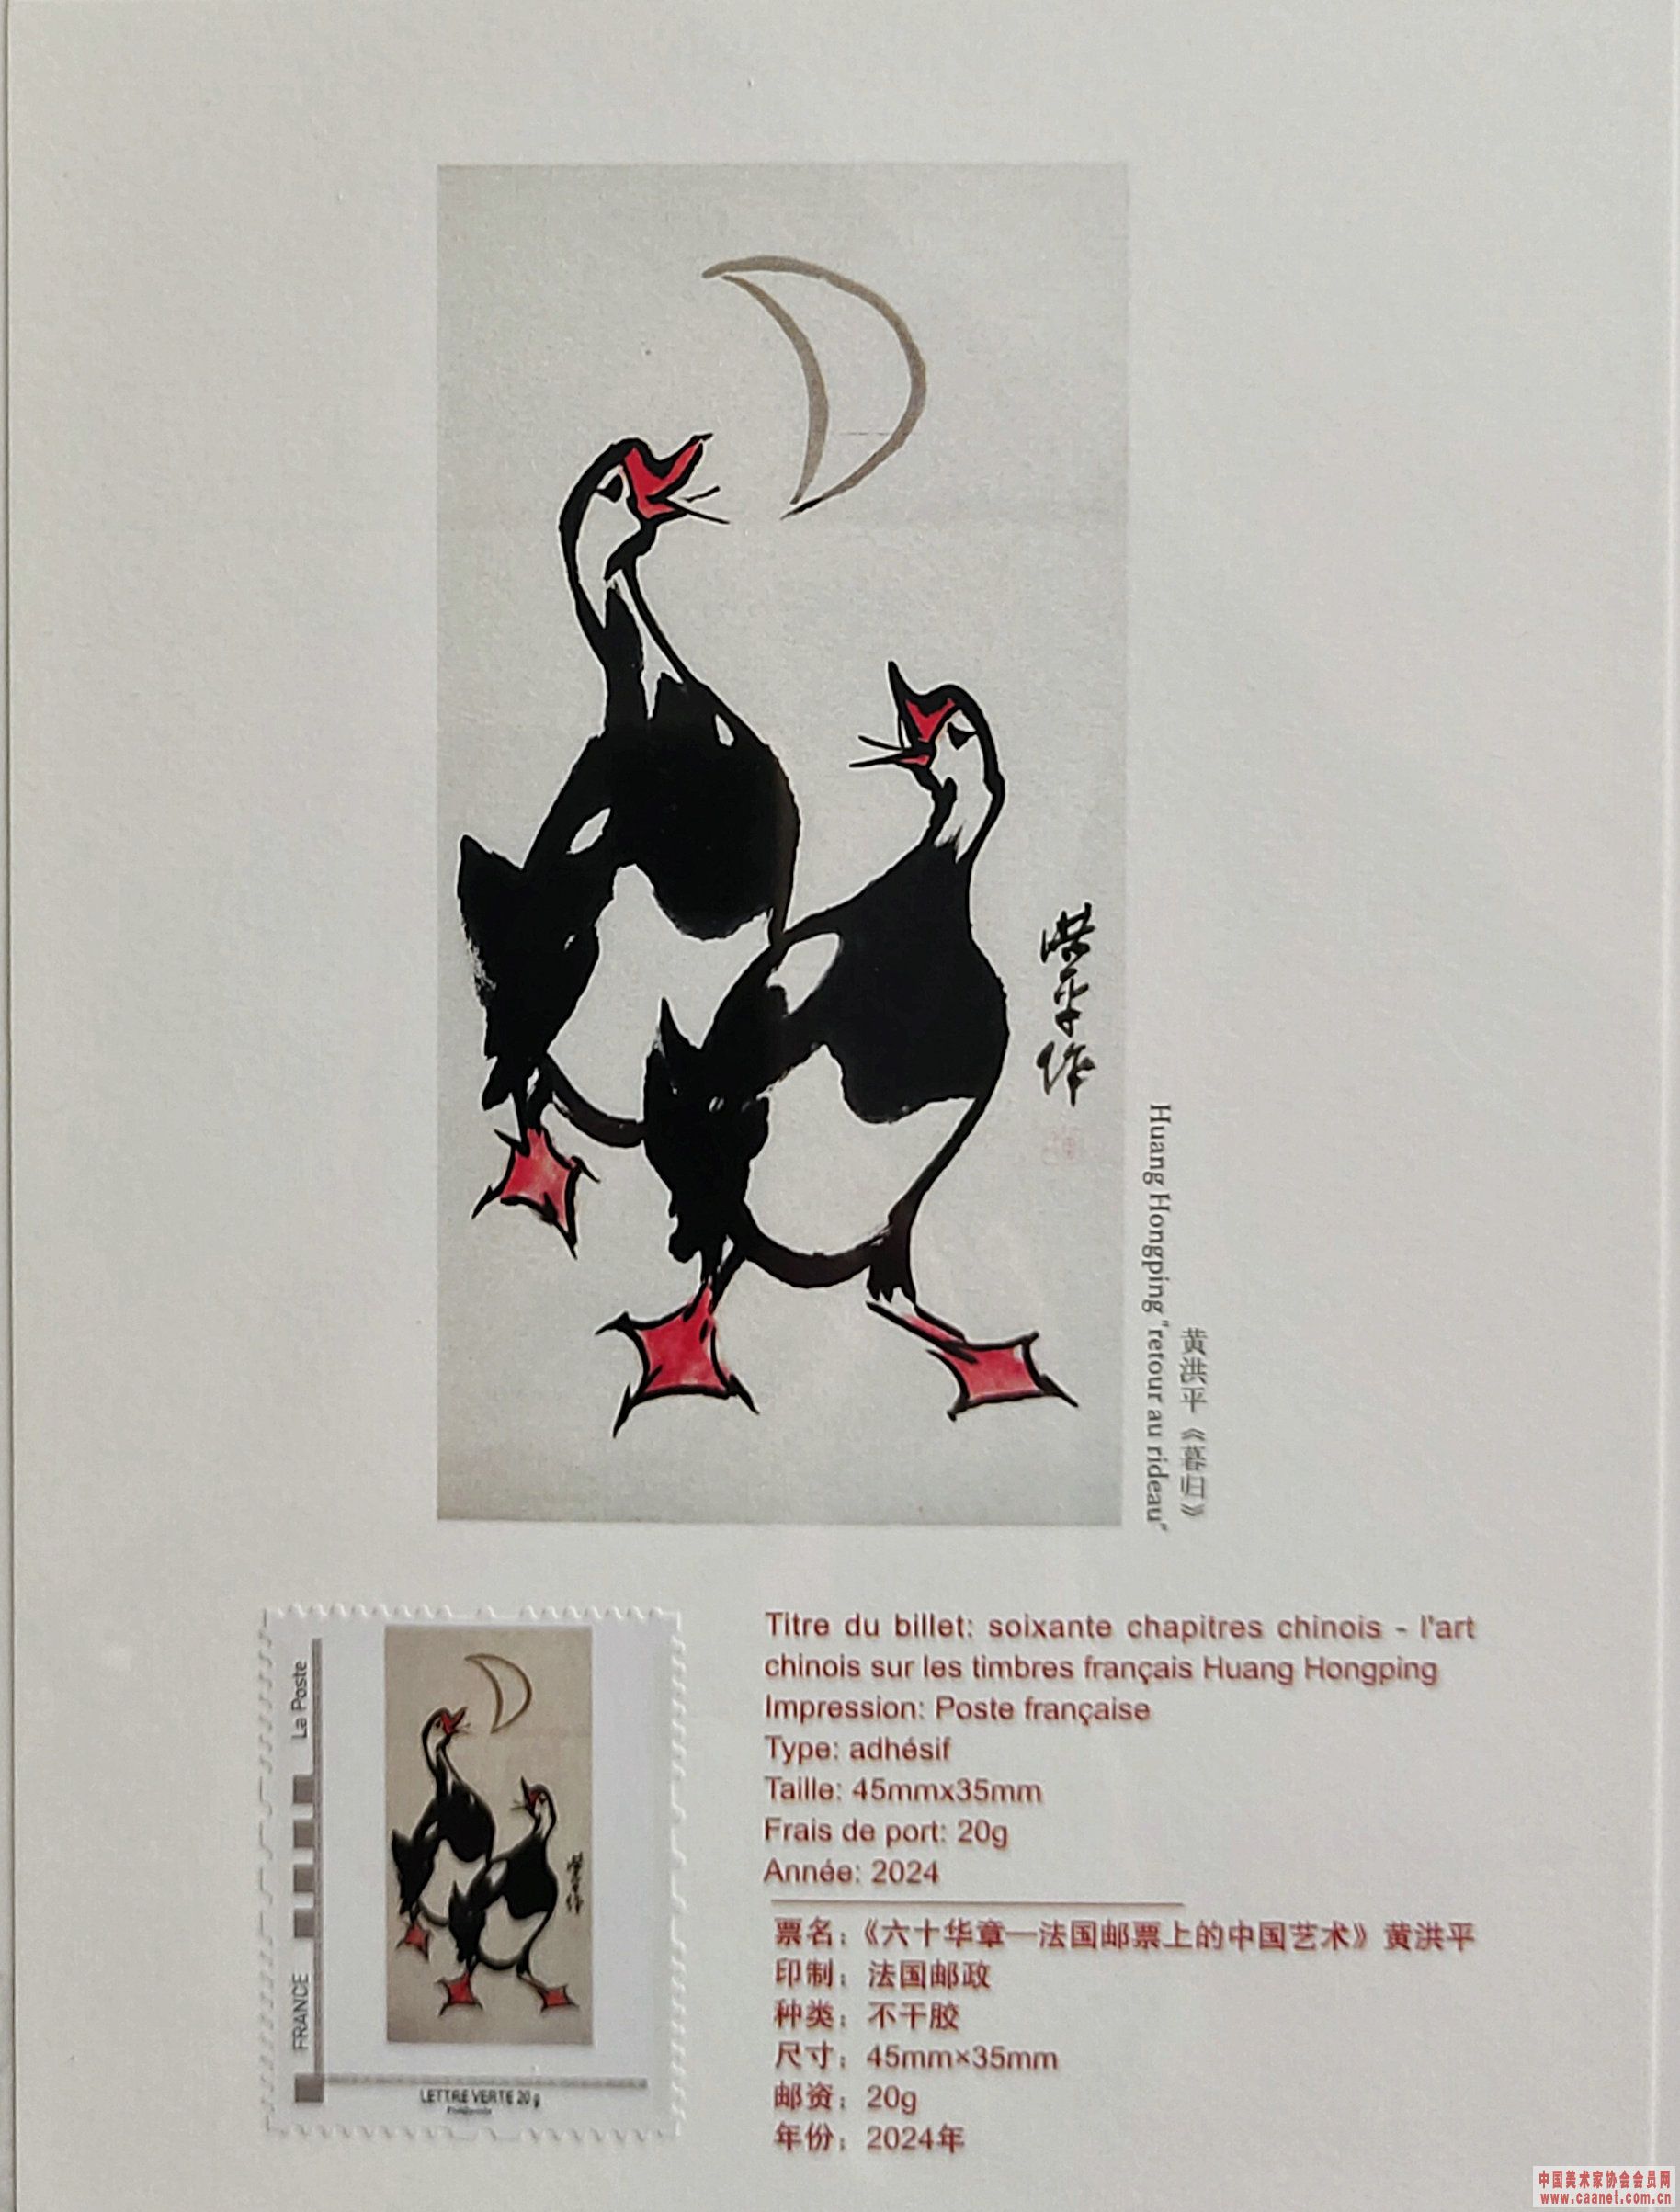 洪平作
Huang Hongping "retour au rideau"
黄洪平《暮归》
La Poste
FRANCE
洪平作
LETTRE VERTE 20 g
Titre du billet: soixante chapitres chinois - l'art
chinois sur les timbres français Huang Hongping
Impression: Poste française
Type: adhésif
Taille: 45mmx35mm
Frais de port: 20g
Année: 2024
票名：《六十华章—法国邮票上的中国艺术》黄洪平
印制：法国邮政
种类：不干胶
尺寸：45mm×35mm
邮资：20g
年份：2024年
中国美术家协会会员网
www.caanet.com.cn